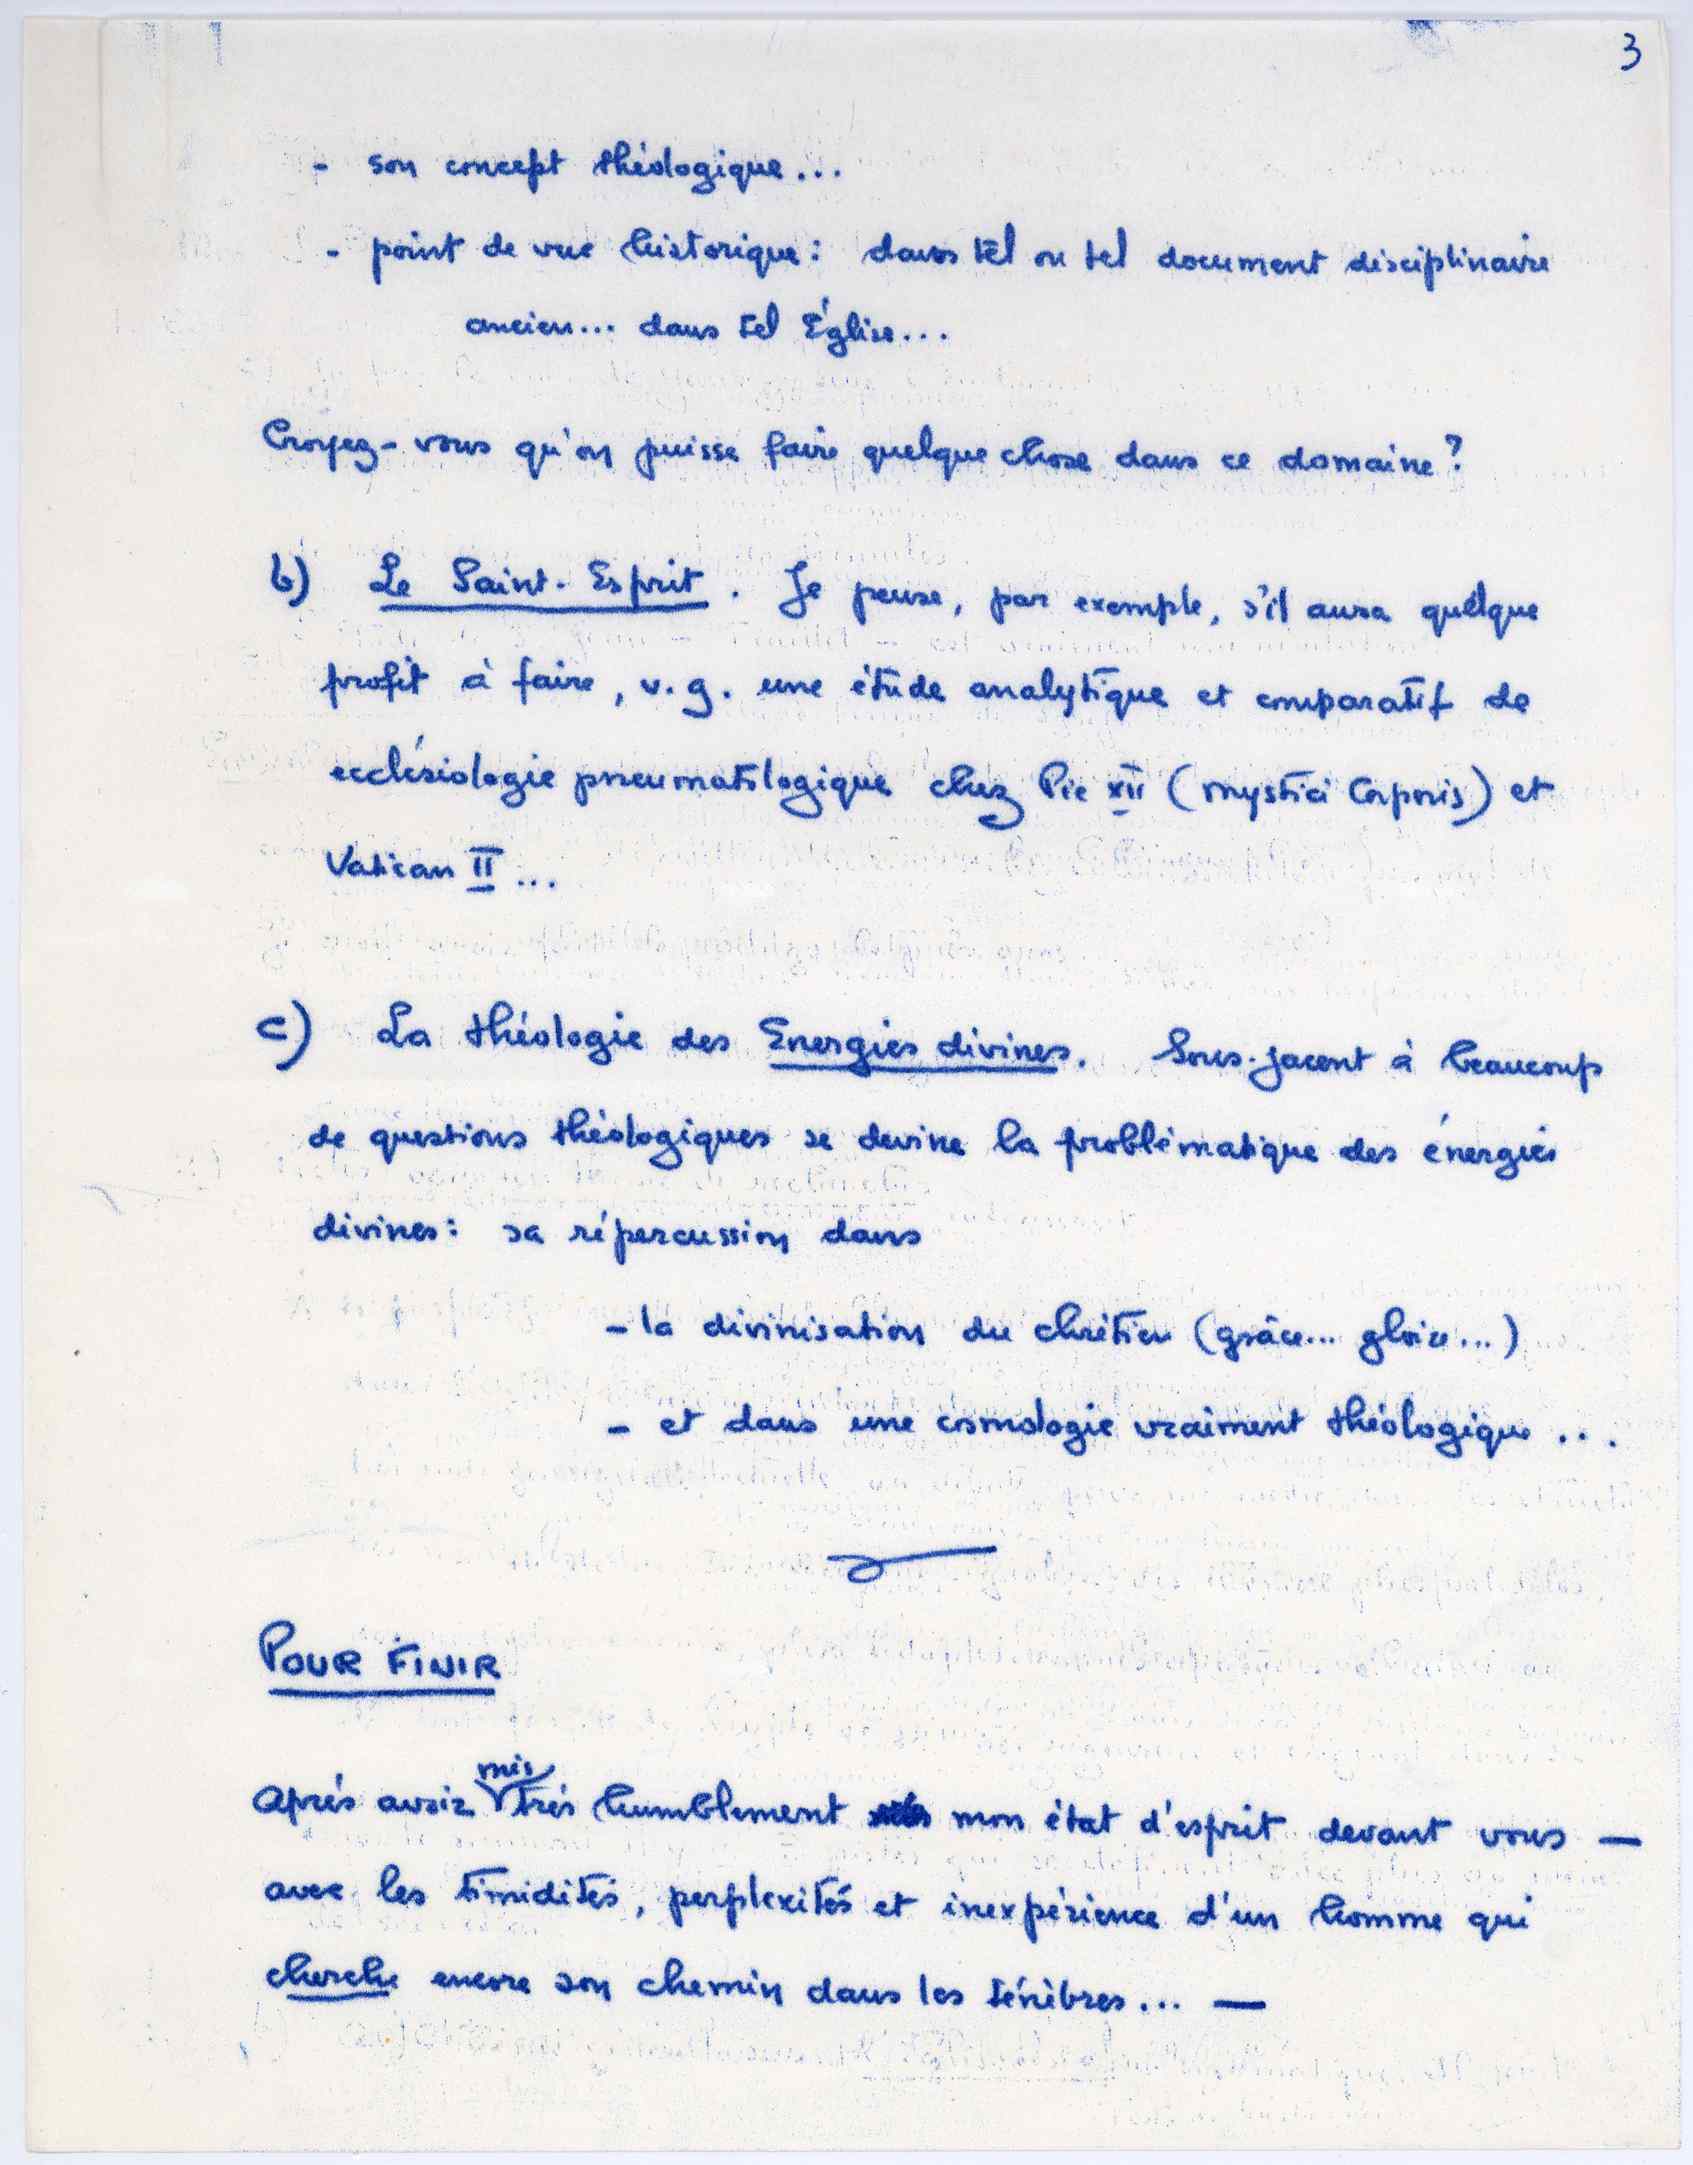 3
- son concept théologique...
- point de vue historique: dans tel ou tel document disciplinaire
ancien... dans tel Église...
Croyez-vous qu'on puisse faire quelque chose dans ce domaine?
b) Le Saint-Esprit. Je pense, par exemple, s'il aura quelque
profit à faire, v.g. une étude analytique et comparatif de
ecclésiologie pneumatologique chez Pie XII (Mystici Corporis) et
Vatican II...
c) La théologie des Energies divines. Sous-jacent à beaucoup
de questions théologiques se devine la problématique des énergies
divines: sa répercussion dans
- la divinisation du chrétien (grâce... gloire...)
- et dans une cosmologie vraiment théologique...
POUR FINIR
Après avoir mis très humblement mon état d'esprit devant vous —
avec les timidités, perplexités et inexpérience d'un homme qui
cherche encore son chemin dans les ténèbres... —